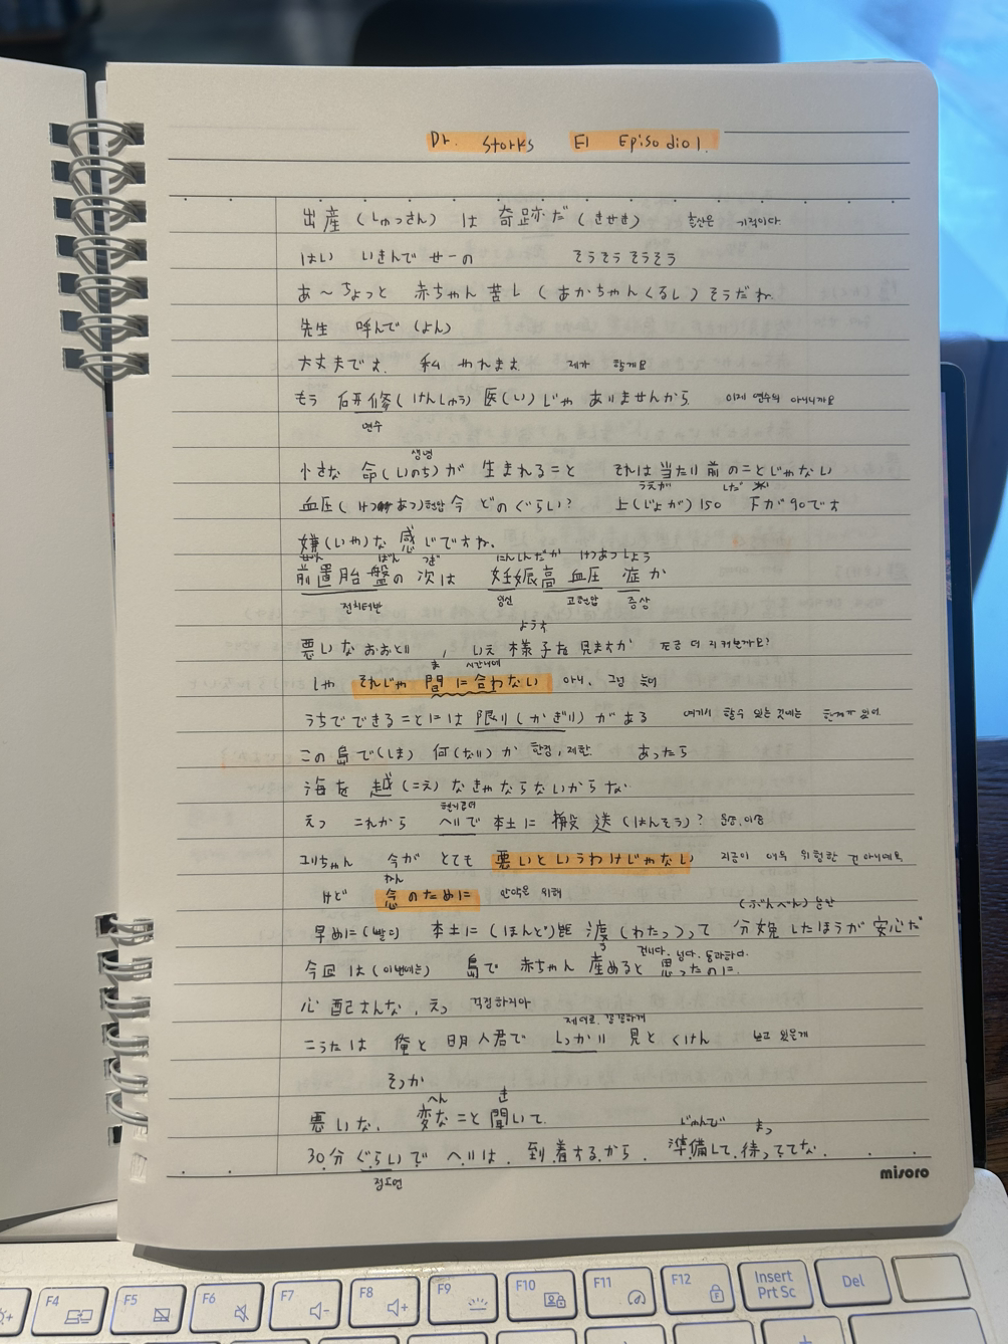 Dr. Storks E1 Episodio1.
出産(しゅっさん)は 奇跡だ(きせき) 출산은 기적이다
はい いきんで せーの そうそうそうそう
あ〜ちょっと 赤ちゃん 苦し(あかちゃんくるし)そうだね
先生 呼んで(よん)
大丈夫です. 私 やれます. 제가 할게요
もう 研修(けんしゅう)医(い)じゃ ありませんから 이제 연수의 아니니까요
연수
생명
小さな 命(いのち)が 生まれること それは 当たり前のことじゃない
うえが した
血圧(けつあつ)혈압 今 どのぐらい? 上(じょが)150 下が90です
嫌(いや)な 感じですね.
ぜん ばん つぎ にんしんだか けつあつしょう
前置胎盤の 次は 妊娠高 血圧 症か
전치태반 임신 고혈압 증상
ようす
悪いな おおとり , いえ 様子を 見ますか 조금 더 지켜볼까요?
ま 시간내에
じゃ それじゃ 間に合わない 아니, 그럼 늦어
うちで できることには 限り(かぎり)がある 여기서 할수 있는 것에는 한계가 있어
この 島で(しま) 何(なに)か 한정, 제한 あったら
海を 越(こえ)なきゃならないからな
헬리콥터
えっ これから ヘリで 本土に 搬送(はんそう)? 운송, 이송
ユリちゃん 今が とても 悪いというわけじゃない 지금이 매우 위험한 건 아니에도
ねん
けど 念のために 만약을 위해
(ぶんべん) 분만
早めに(빨리) 本土に(ほんど) 渡(わたっ)って 分娩 したほうが 安心だ
う 건너다. 넘다. 통과하다.
今回は(이번에는) 島で 赤ちゃん 産めると 思ったのに.
心配さんな, えっ 걱정하지마
제대로, 꼼꼼하게
こうたは 俺と 明人君で しっかり 見とくけん 보고 있을게
そっか
へん き
悪いな. 変なこと 聞いて.
じゅんび まっ
30分 ぐらいで ヘリは. 到着するから. 準備して. 待っててな.
정도면
misoro
F4 F5 F6 F7 F8 F9 F10 F11 F12 Insert Prt Sc Del